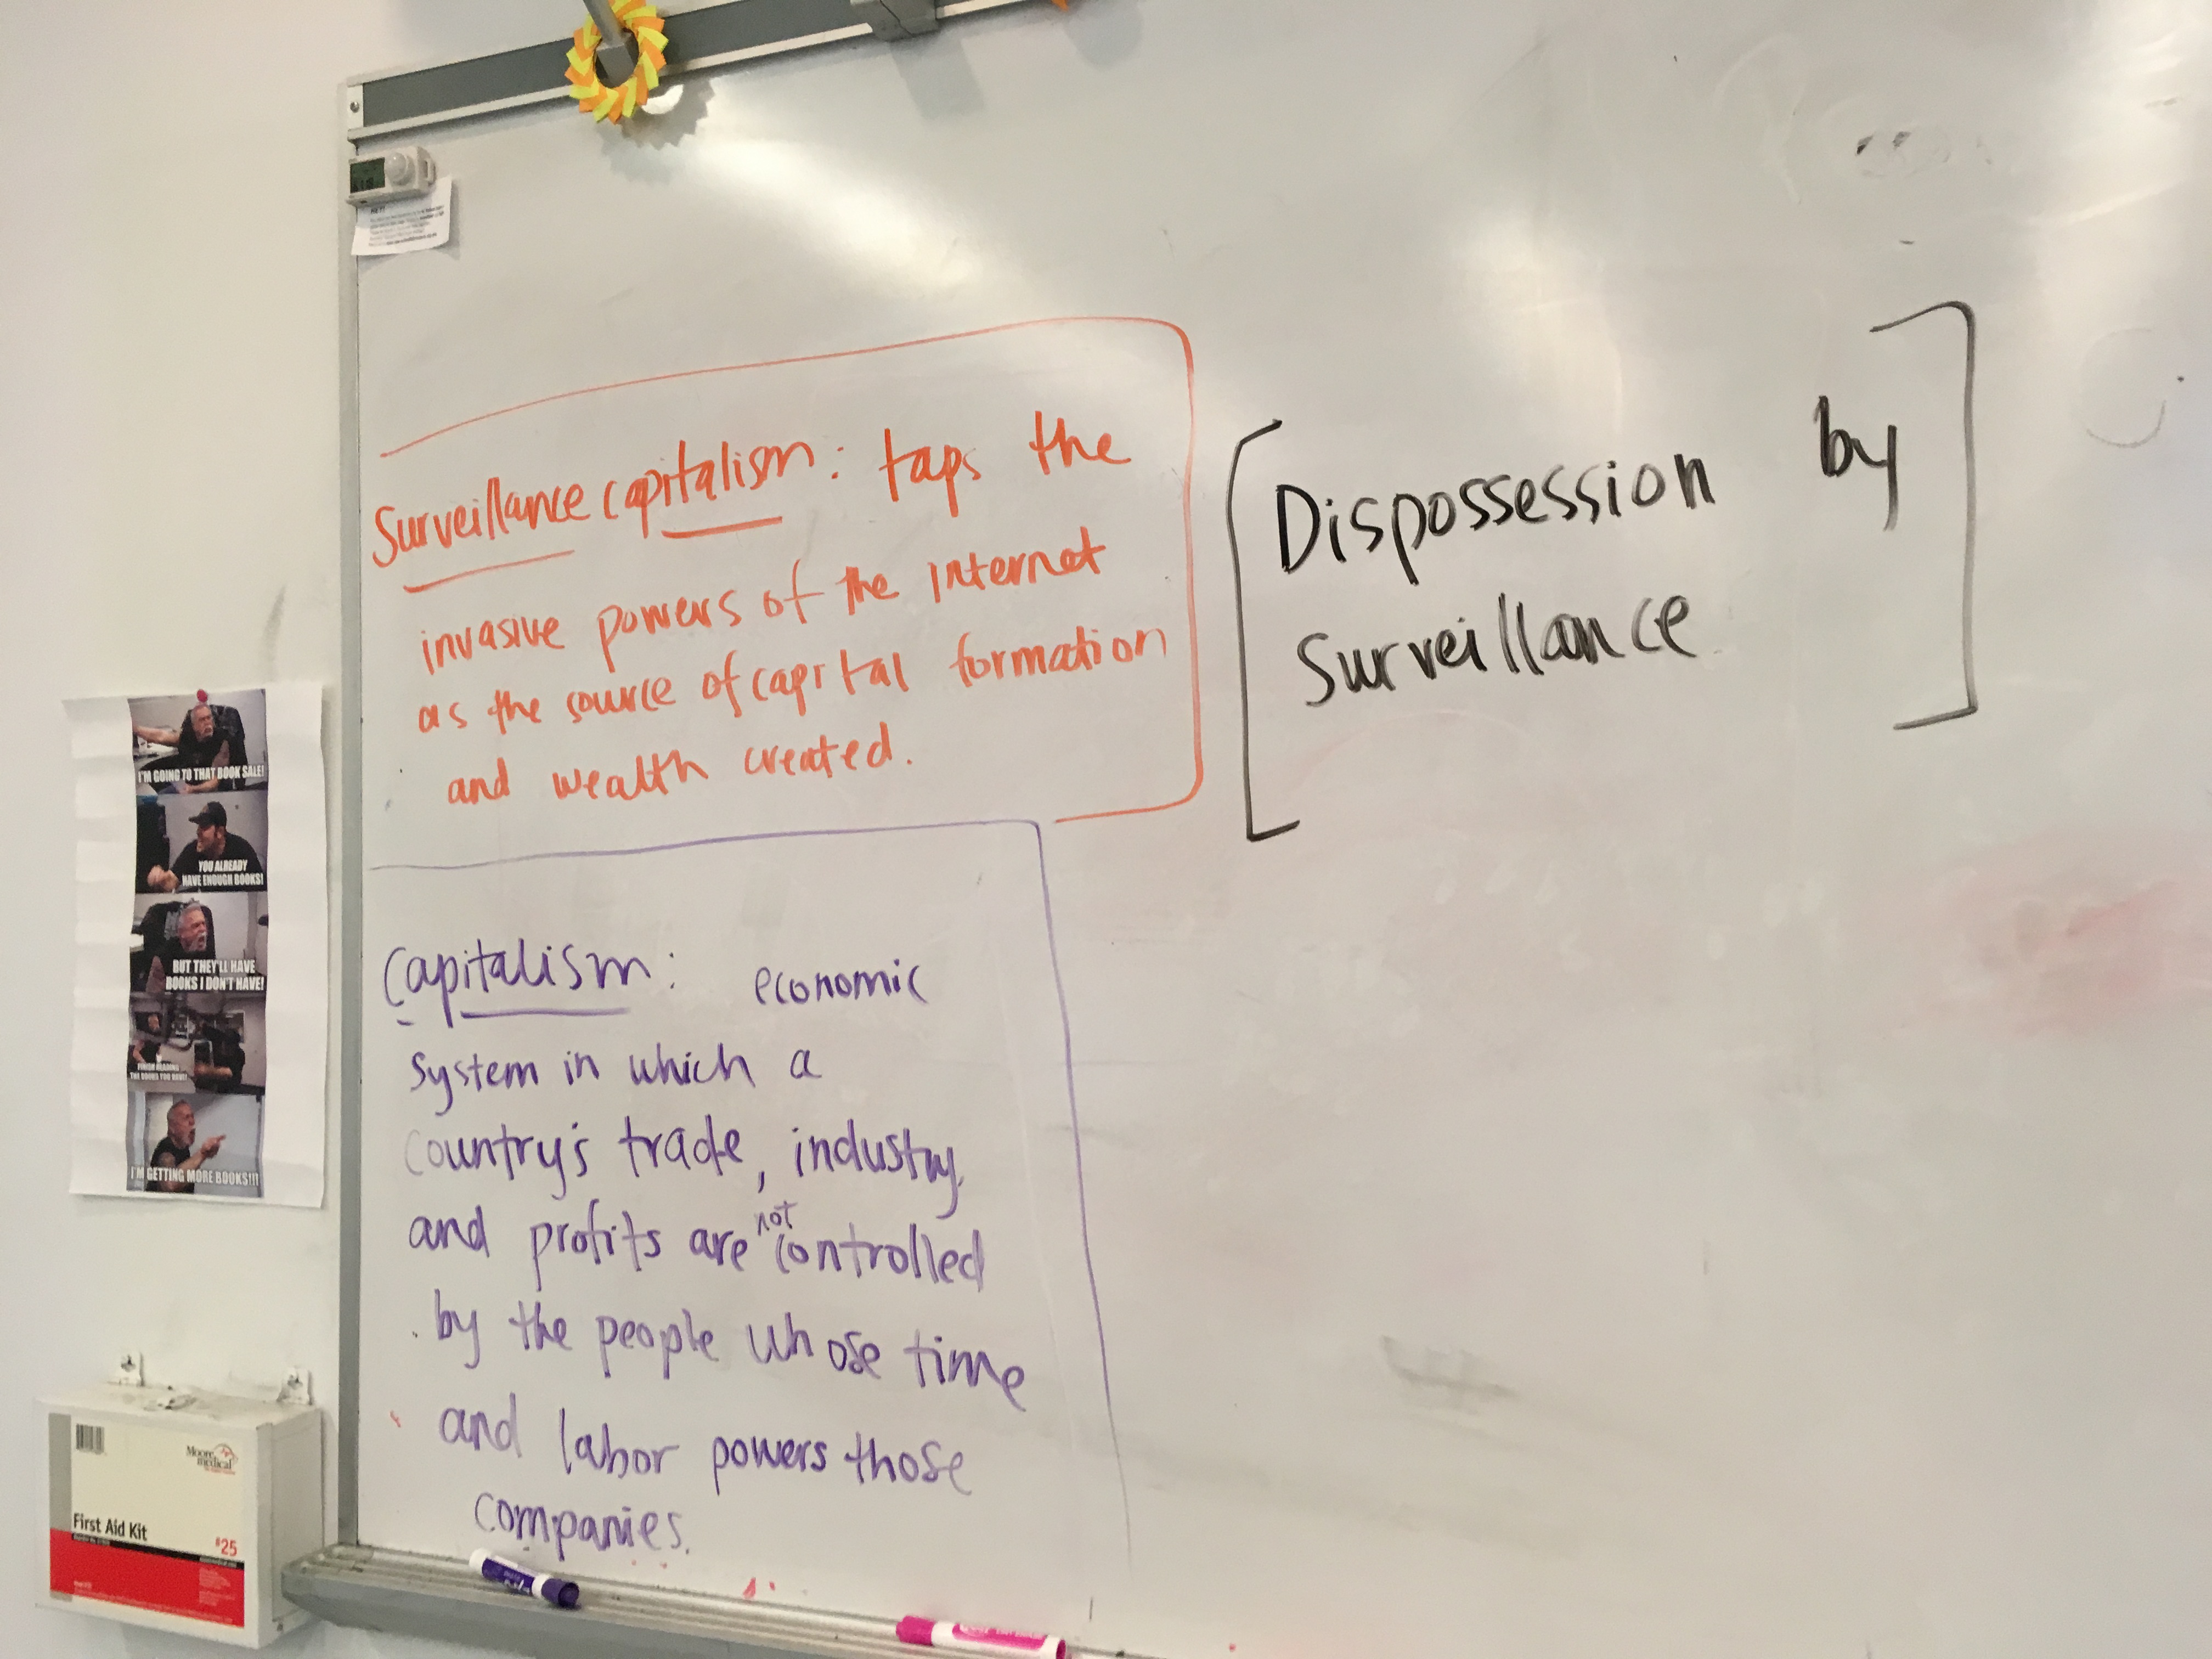 Surveillance capitalism: taps the
invasive powers of the internet
as the source of capital formation
and wealth created.
[Dispossession by
Surveillance]
Capitalism: economic
system in which a
country's trade, industry,
and profits are not controlled
by the people whose time
and labor powers those
companies.
I'M GOING TO THAT BOOK SALE!
YOU ALREADY
HAVE ENOUGH BOOKS!
BUT THEY'LL HAVE
BOOKS I DON'T HAVE!
FINISH READING
THE BOOKS YOU HAVE!
I'M GETTING MORE BOOKS!!!
Moore
medical
First Aid Kit
#25